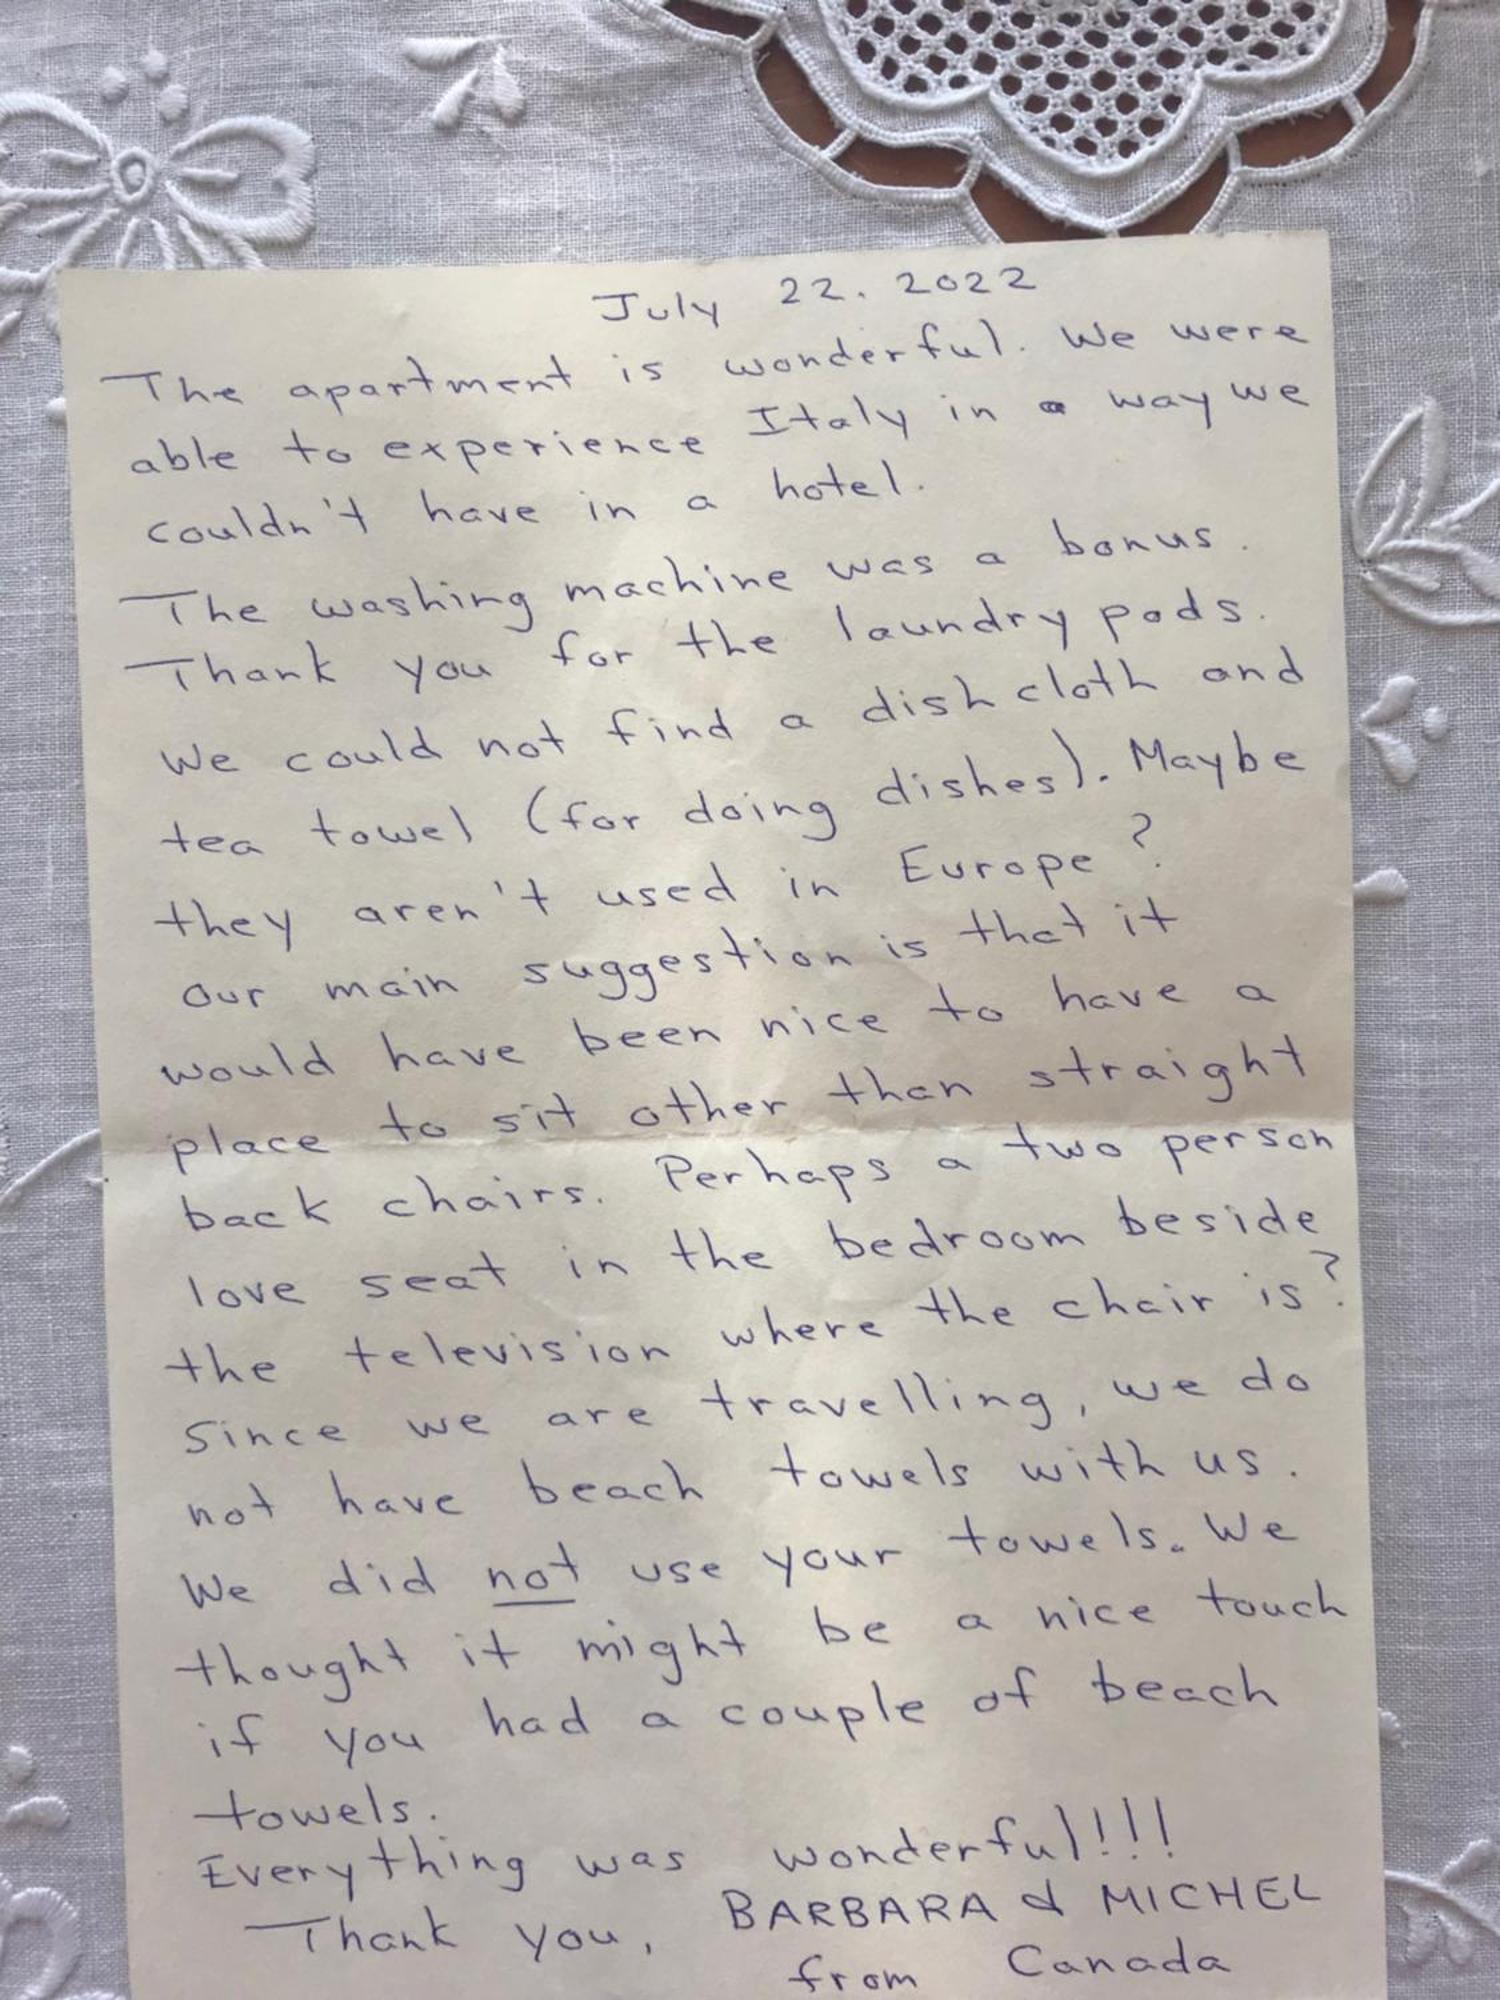 July 22. 2022
The apartment is wonderful. We were
able to experience Italy in a way we
couldn't have in a hotel.
The washing machine was a bonus.
Thank you for the laundry pods.
We could not find a dish cloth and
tea towel (for doing dishes). Maybe
they aren't used in Europe?
Our main suggestion is that it
would have been nice to have a
place to sit other than straight
back chairs. Perhaps a two person
love seat in the bedroom beside
the television where the chair is?
Since we are travelling, we do
not have beach towels with us.
We did not use your towels. We
thought it might be a nice touch
if you had a couple of beach
towels.
Everything was wonderful!!!
Thank you, BARBARA & MICHEL
from Canada